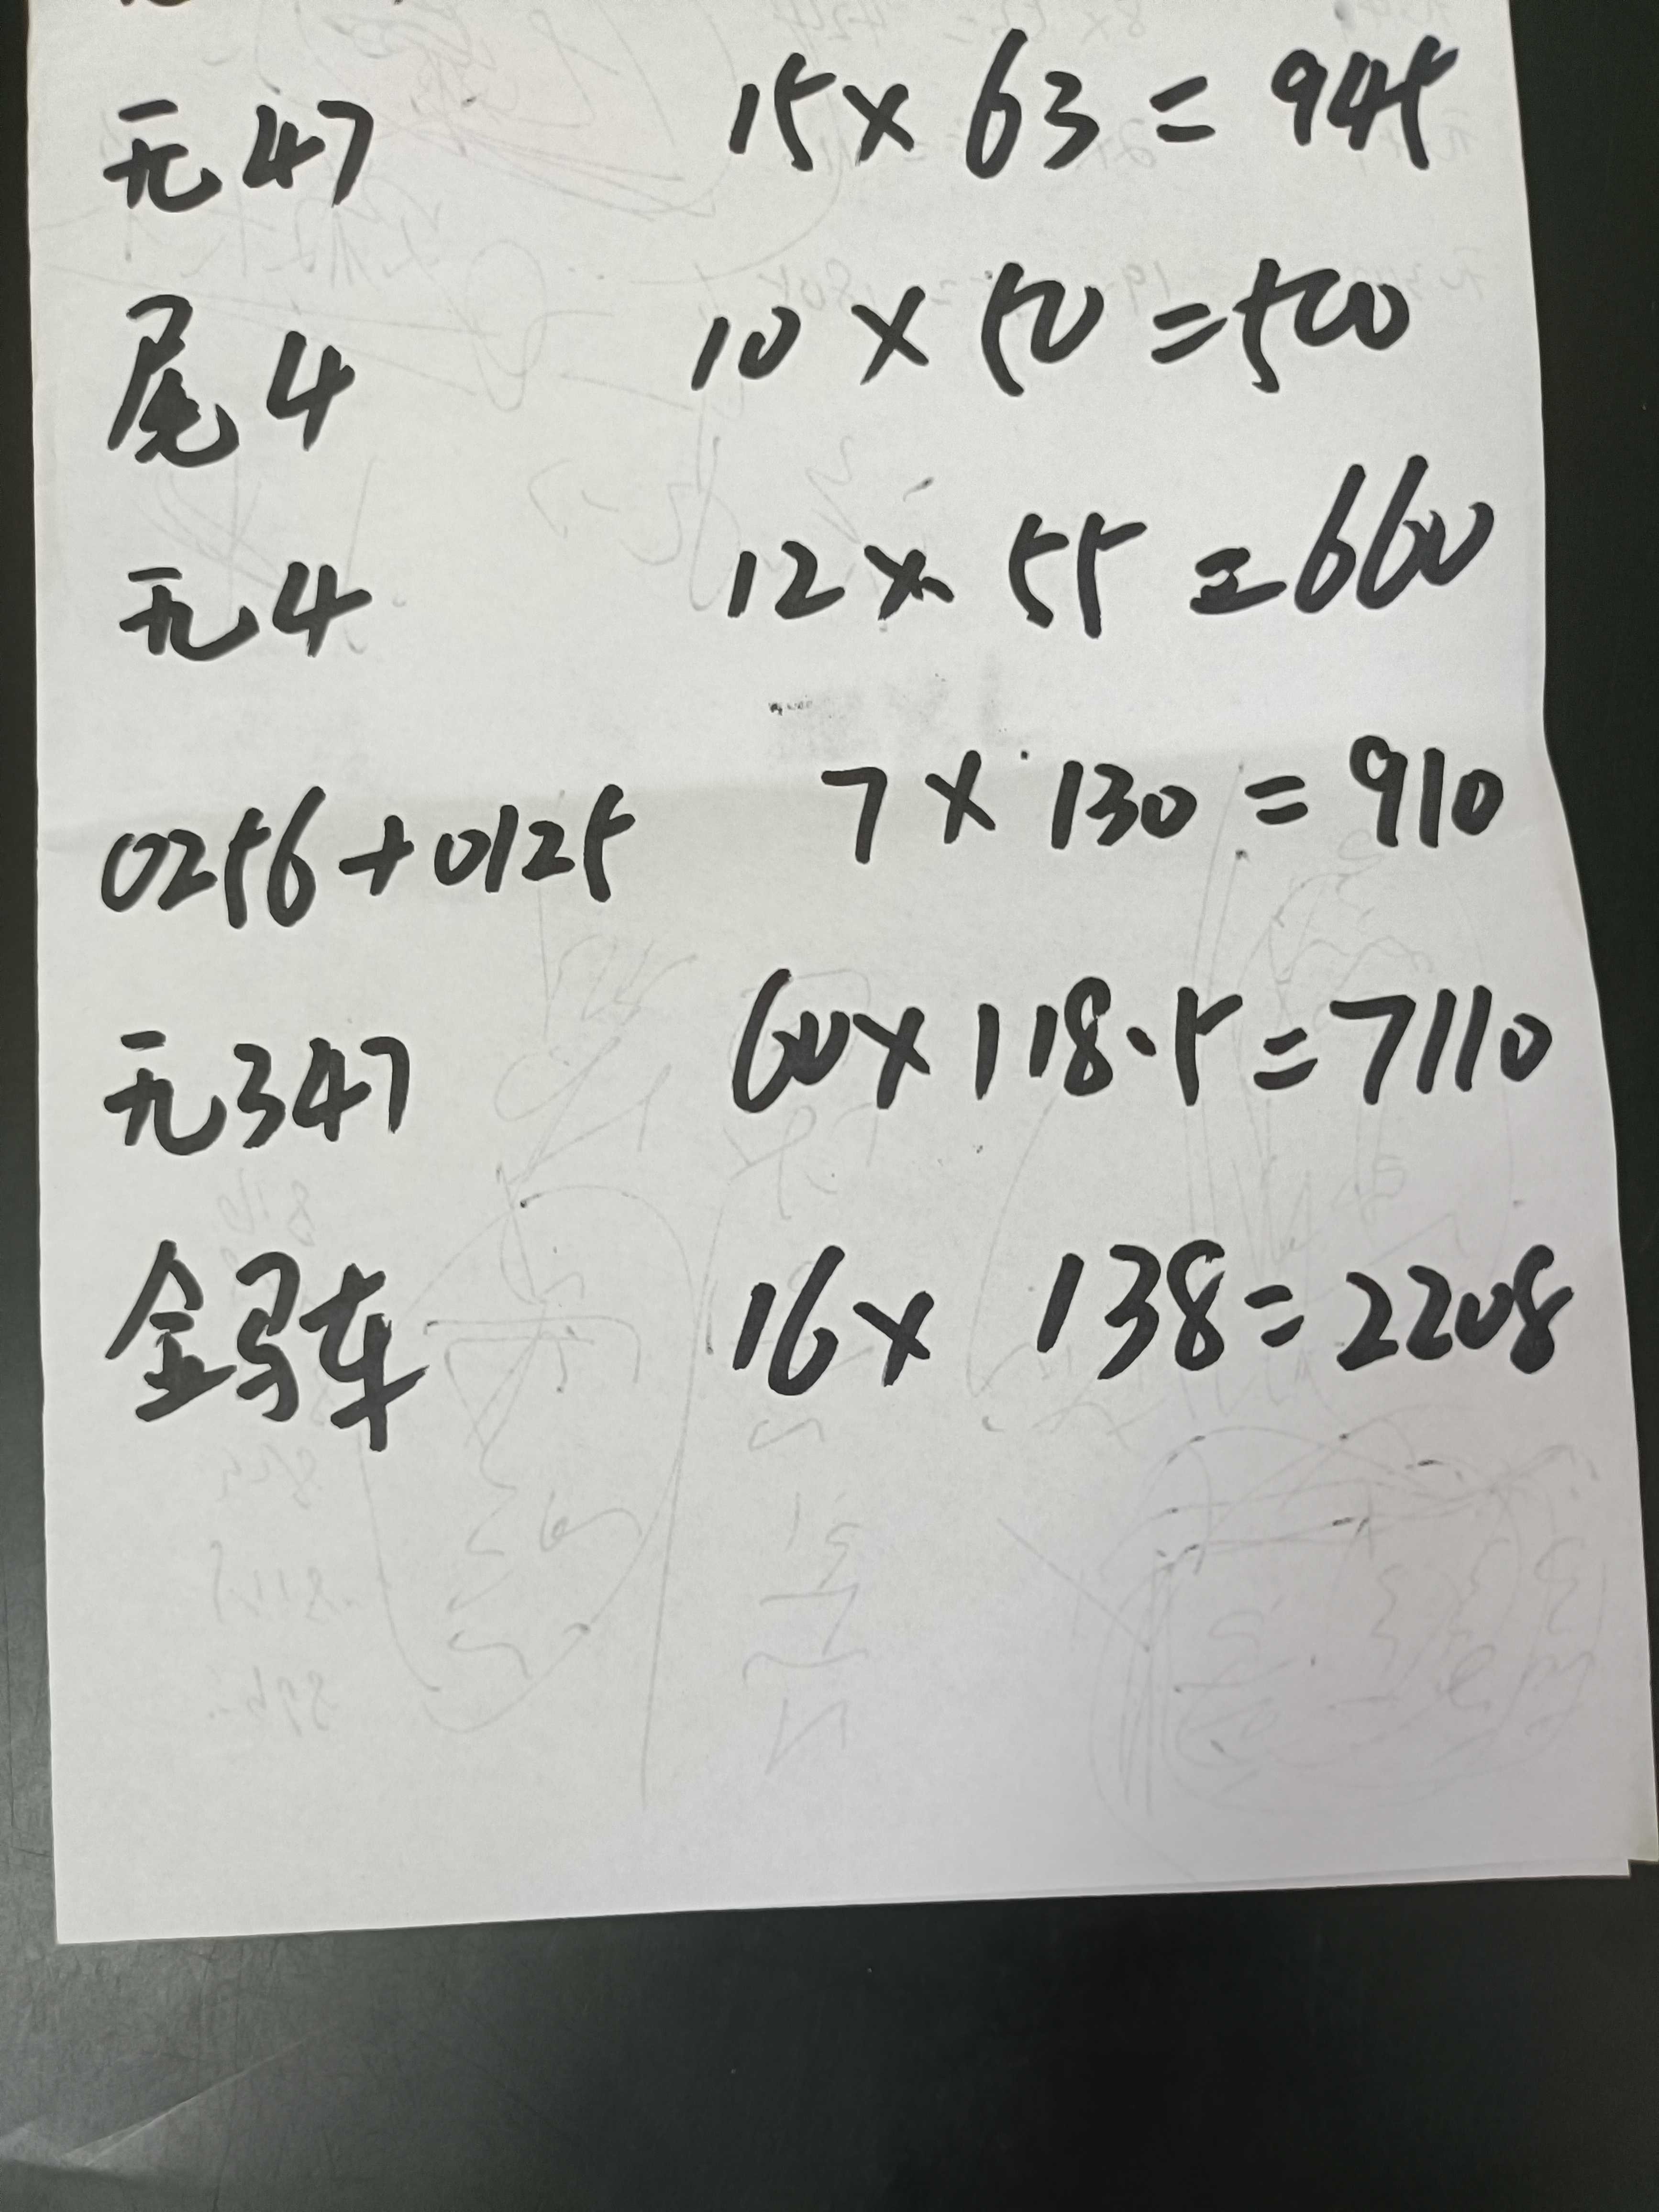 无47 15×63=945
尾4 10×50=500
无4 12×55=660
0256+0125 7×130=910
无347 60×118.5=7110
金马车 16×138=2208